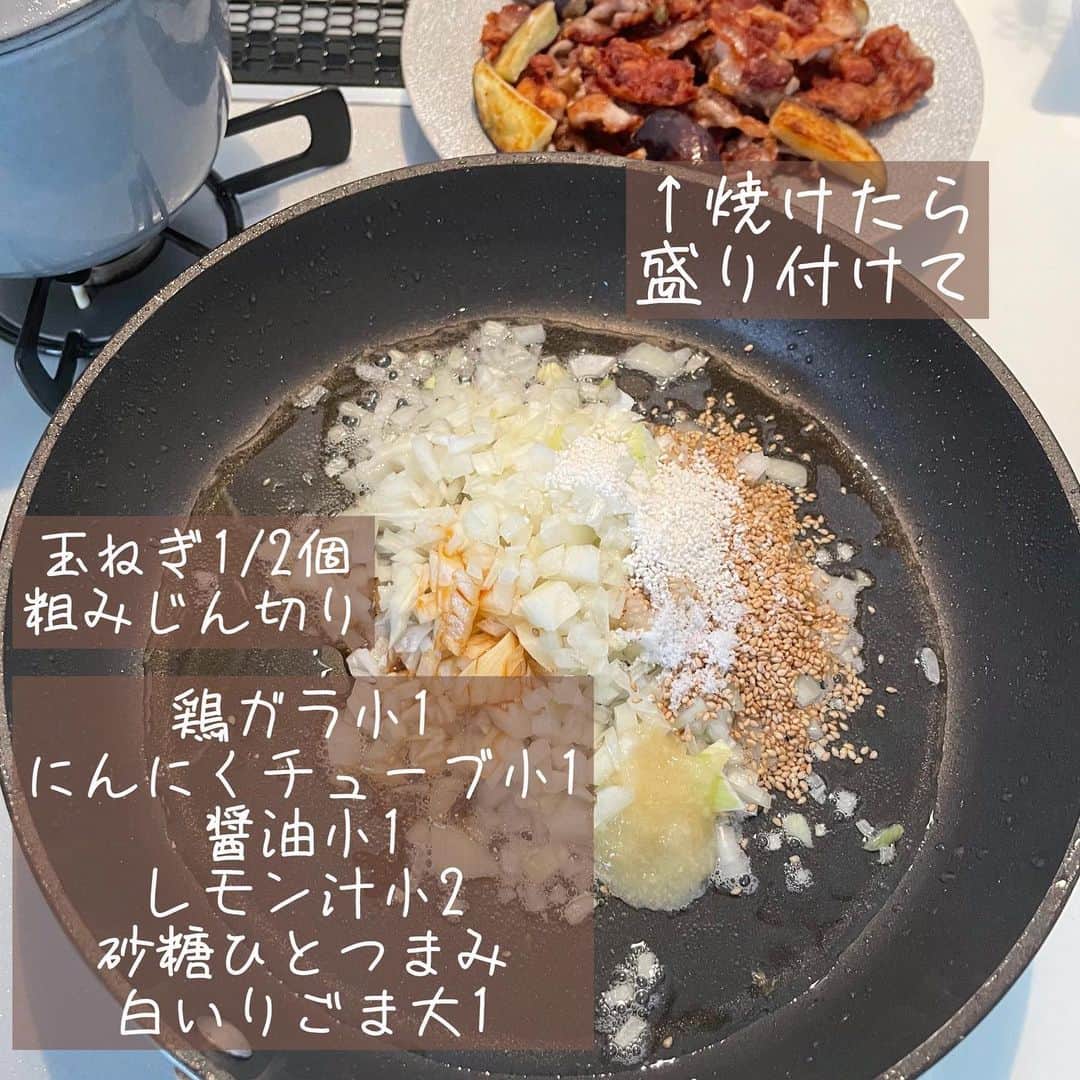 ↑焼けたら
盛り付けて
玉ねぎ1/2個
粗みじん切り
鶏ガラ小1
にんにくチューブ小1
醤油小1
レモン汁小2
砂糖ひとつまみ
白いりごま大1